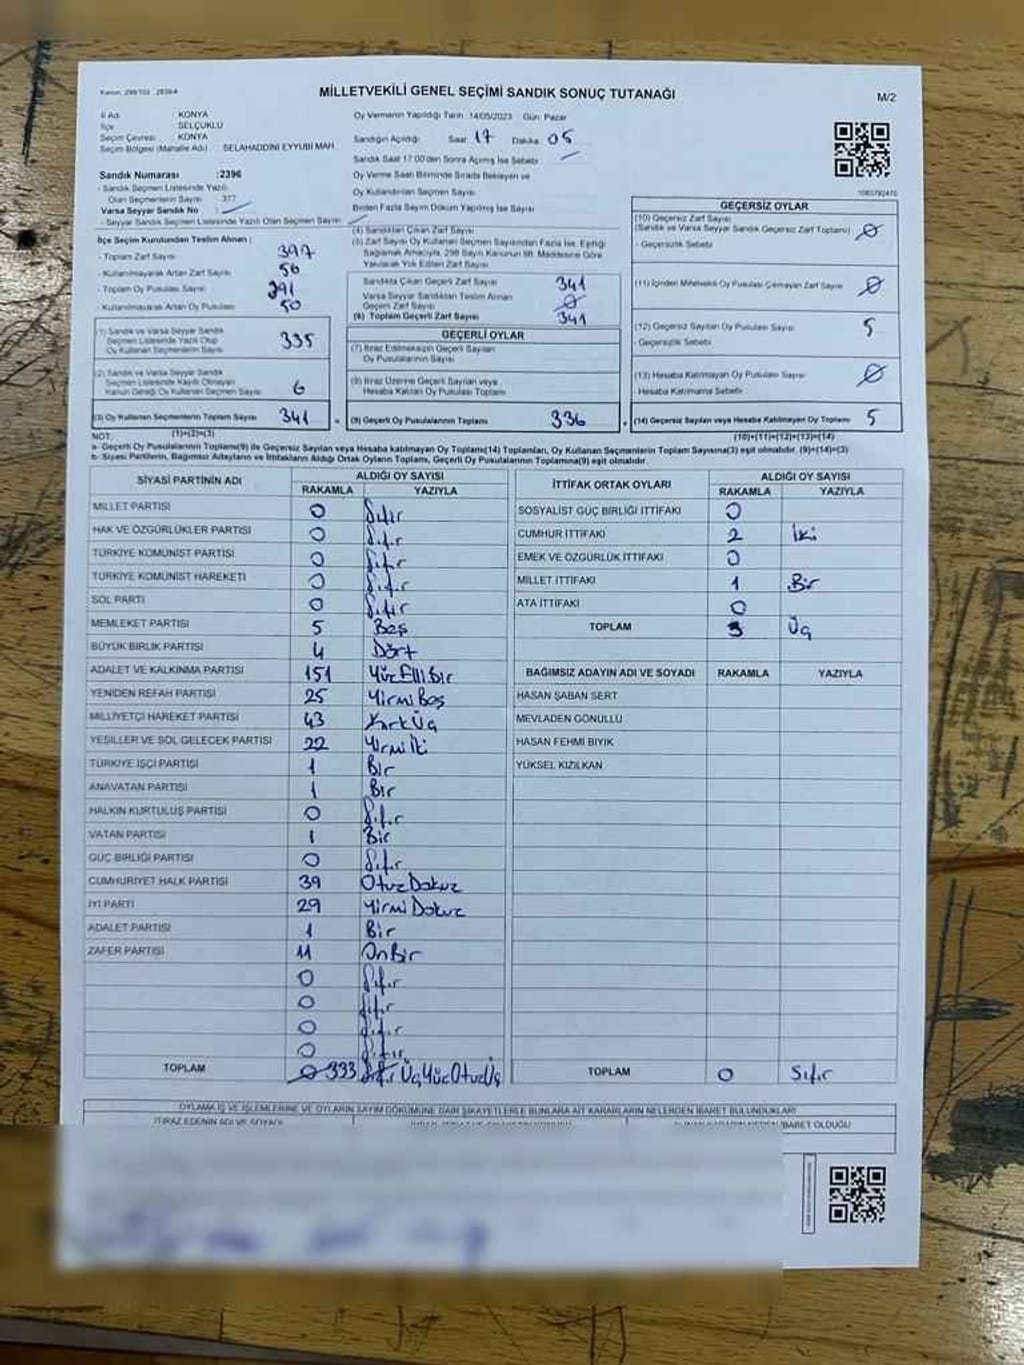 MİLLETVEKİLİ GENEL SEÇİMİ SANDIK SONUÇ TUTANAĞI
M/2
İl Adı : KONYA
İlçe : SELÇUKLU
Seçim Çevresi : KONYA
Seçim Bölgesi (Mahalle Adı) : SELAHADDİNİ EYYUBİ MAH.
Sandık Numarası :2396
- Sandık Seçmen Listesinde Yazılı
Olan Seçmenlerin Sayısı 377
Varsa Seyyar Sandık No :
- Seyyar Sandık Seçmen Listesinde Yazılı Olan Seçmen Sayısı
Oy Vermenin Yapıldığı Tarih : 14/05/2023 Gün: Pazar
Sandığın Açıldığı Saat 17 Dakika 05
Sandık Saat 17:00'den Sonra Açılmış İse Sebebi
Oy Verme Saati Bitiminde Sırada Bekleyen ve
Oy Kullandırılan Seçmen Sayısı
Birden Fazla Sayım Döküm Yapılmış İse Sayısı
İlçe Seçim Kurulundan Teslim Alınan :
- Toplam Zarf Sayısı 397
- Kullanılmayarak Artan Zarf Sayısı 56
- Toplam Oy Pusulası Sayısı 391
- Kullanılmayarak Artan Oy Pusulası 50
(1) Sandık ve Varsa Seyyar Sandık
Seçmen Listesinde Yazılı Olup
Oy Kullanan Seçmenlerin Sayısı 335
(2) Sandık ve Varsa Seyyar Sandık
Seçmen Listesinde Kayıtlı Olmayan
Kanun Gereği Oy Kullanan Seçmen Sayısı 6
(3) Oy Kullanan Seçmenlerin Toplam Sayısı 341
(1)+(2)=(3)
(4) Sandıktan Çıkan Zarf Sayısı
(5) Zarf Sayısı Oy Kullanan Seçmen Sayısından Fazla İse, Eşitliği
Sağlamak Amacıyla, 298 Sayılı Kanunun 98. Maddesine Göre
Yakılarak Yok Edilen Zarf Sayısı
Sandıkta Çıkan Geçerli Zarf Sayısı 341
Varsa Seyyar Sandıktan Teslim Alınan
Geçerli Zarf Sayısı 0
(6) Toplam Geçerli Zarf Sayısı 341
GEÇERLİ OYLAR
(7) İtiraz Edilmeksizin Geçerli Sayılan
Oy Pusulalarının Sayısı
(8) İtiraz Üzerine Geçerli Sayılan veya
Hesaba Katılan Oy Pusulası Toplamı
(9) Geçerli Oy Pusulalarının Toplamı 336
GEÇERSİZ OYLAR
(10) Geçersiz Zarf Sayısı
(Sandık ve Varsa Seyyar Sandık Geçersiz Zarf Toplamı) 0
- Geçersizlik Sebebi
(11) İçinden Milletvekili Oy Pusulası Çıkmayan Zarf Sayısı 0
(12) Geçersiz Sayılan Oy Pusulası Sayısı 5
- Geçersizlik Sebebi
(13) Hesaba Katılmayan Oy Pusulası Sayısı 0
Hesaba Katılmama Sebebi
(14) Geçersiz Sayılan veya Hesaba Katılmayan Oy Toplamı 5
(10)+(11)+(12)+(13)=(14)
NOT:
a- Geçerli Oy Pusulalarının Toplamı(9) ile Geçersiz Sayılan veya Hesaba Katılmayan Oy Toplamı(14) Toplamları, Oy Kullanan Seçmenlerin Toplam Sayısına(3) eşit olmalıdır. (9)+(14)=(3)
b- Siyasi Partilerin, Bağımsız Adayların ve İttifakların Aldığı Ortak Oyların Toplamı, Geçerli Oy Pusulalarının Toplamına(9) eşit olmalıdır.
SİYASİ PARTİNİN ADI ALDIĞI OY SAYISI
RAKAMLA YAZIYLA
MİLLET PARTİSİ 0 Sıfır
HAK VE ÖZGÜRLÜKLER PARTİSİ 0 Sıfır
TÜRKİYE KOMÜNİST PARTİSİ 0 Sıfır
TÜRKİYE KOMÜNİST HAREKETİ 0 Sıfır
SOL PARTİ 0 Sıfır
MEMLEKET PARTİSİ 5 Beş
BÜYÜK BİRLİK PARTİSİ 4 Dört
ADALET VE KALKINMA PARTİSİ 151 YüzElliBir
YENİDEN REFAH PARTİSİ 25 YirmiBeş
MİLLİYETÇİ HAREKET PARTİSİ 43 KırkÜç
YEŞİLLER VE SOL GELECEK PARTİSİ 22 Yirmiİki
TÜRKİYE İŞÇİ PARTİSİ 1 Bir
ANAVATAN PARTİSİ 1 Bir
HALKIN KURTULUŞ PARTİSİ 0 Sıfır
VATAN PARTİSİ 1 Bir
GÜÇ BİRLİĞİ PARTİSİ 0 Sıfır
CUMHURİYET HALK PARTİSİ 39 OtuzDokuz
İYİ PARTİ 29 YirmiDokuz
ADALET PARTİSİ 1 Bir
ZAFER PARTİSİ 11 OnBir
0 Sıfır
0 Sıfır
0 Sıfır
0 Sıfır
TOPLAM 0 333 Sıfır ÜçYüzOtuzÜç
İTTİFAK ORTAK OYLARI ALDIĞI OY SAYISI
RAKAMLA YAZIYLA
SOSYALİST GÜÇ BİRLİĞİ İTTİFAKI 0
CUMHUR İTTİFAKI 2 İki
EMEK VE ÖZGÜRLÜK İTTİFAKI 0
MİLLET İTTİFAKI 1 Bir
ATA İTTİFAKI 0
TOPLAM 3 Üç
BAĞIMSIZ ADAYIN ADI VE SOYADI RAKAMLA YAZIYLA
HASAN ŞABAN SERT
MEVLADEN GÖNÜLLÜ
HASAN FEHMİ BIYIK
YÜKSEL KIZILKAN
TOPLAM 0 Sıfır
OYLAMA İŞ VE İŞLEMLERİNE VE OYLARIN SAYIM DÖKÜMÜNE DAİR ŞİKAYETLERLE BUNLARA AİT KARARLARIN NELERDEN İBARET BULUNDUKLARI
İTİRAZ EDENİN ADI VE SOYADI